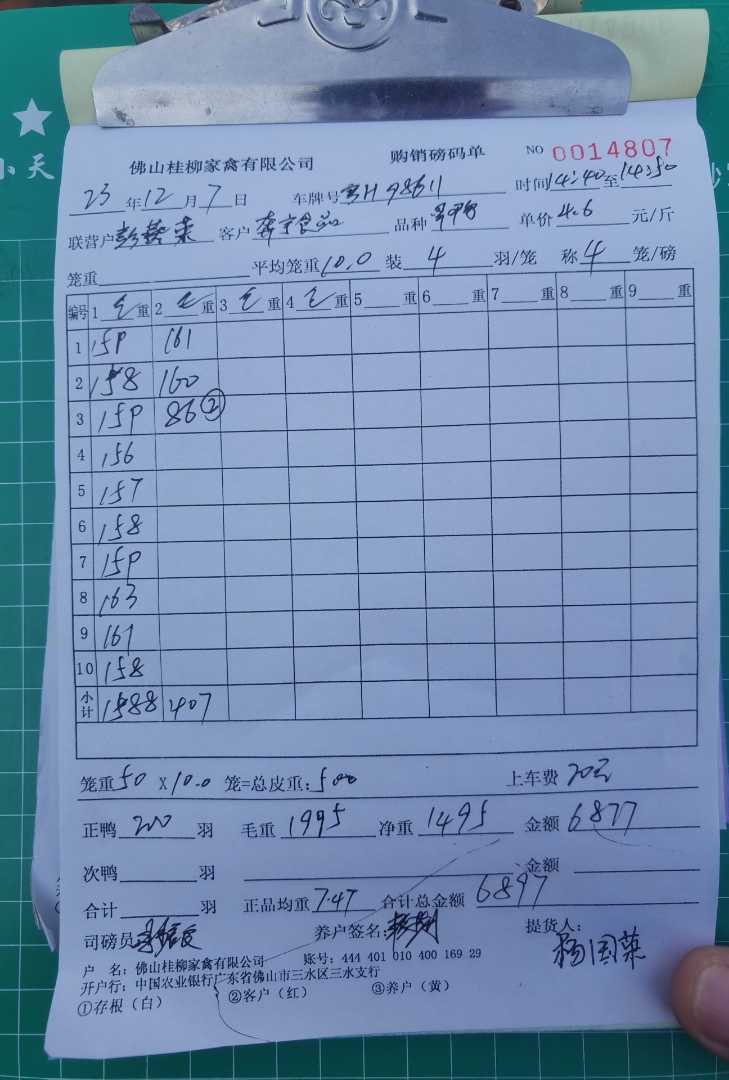 小天
佛山桂柳家禽有限公司 购销磅码单 NO 0014807
23 年 12 月 7 日 车牌号 H98611 时间 14:40 至 14:50
联营户 客户 食品 品种 单价 4.6 元/斤
笼重 平均笼重 10.0 装 4 羽/笼 称 4 笼/磅
编号 1 毛 重 2 毛 重 3 毛 重 4 毛 重 5 重 6 重 7 重 8 重 9 重
1 159 161
2 158 160
3 159 86 ②
4 156
5 157
6 158
7 159
8 163
9 161
10 158
小计 1588 407
笼重 50 X 10.0 笼=总皮重: 500 上车费 20元
正鸭 200 羽 毛重 1995 净重 1495 金额 6877
次鸭 羽 金额
合计 羽 正品均重 7.47 合计总金额 6897
司磅员 养户签名: 提货人:
杨国荣
户 名: 佛山桂柳家禽有限公司 账号: 444 401 010 400 169 29
开户行: 中国农业银行广东省佛山市三水区三水支行
①存根(白) ②客户(红) ③养户(黄)